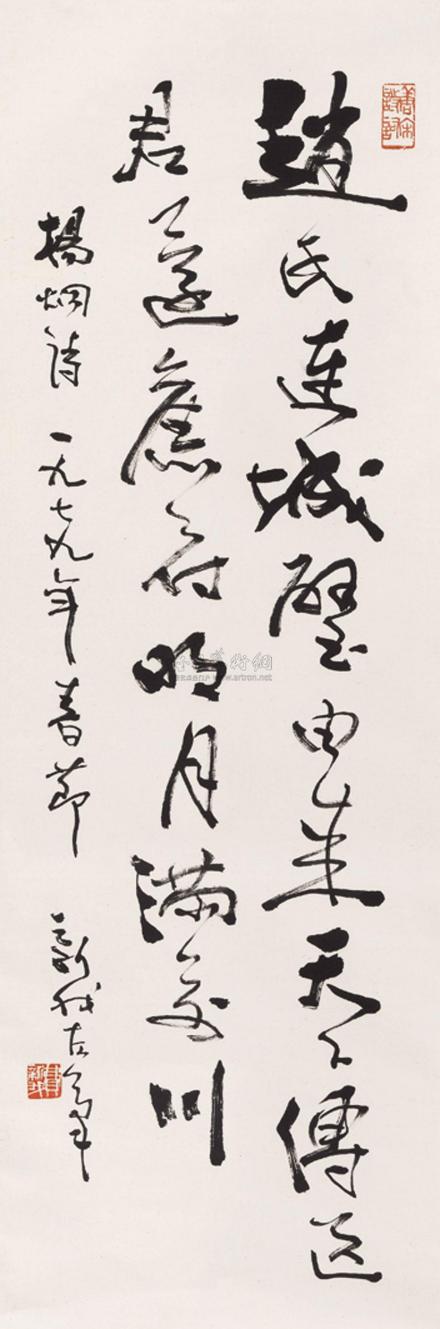 趙氏連城璧由来天下傳送
君還舊府明月滿前川
楊炯詩 一九七九年春節 新我左筆